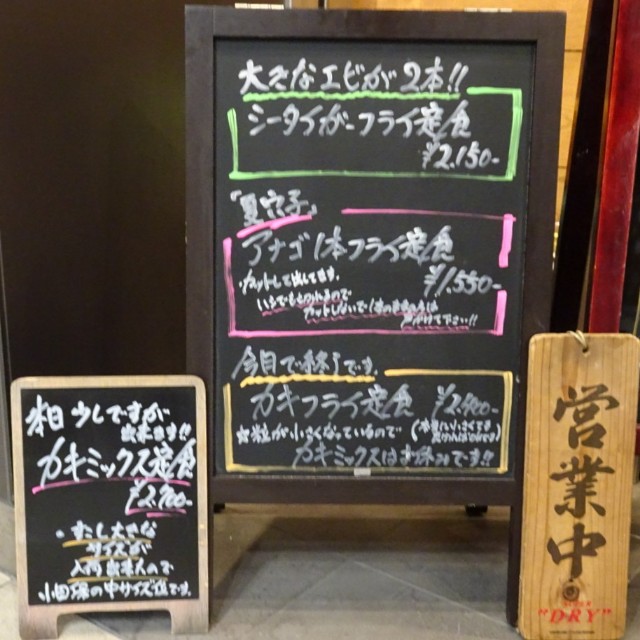 大きなエビが2本!!
シータイガーフライ定食
¥2.150-
『夏穴子』
アナゴ1本フライ定食
¥1.550-
カットして出してます。
いつでも切れるので
カットしないで1本のままの方は
声かけて下さい!!
今月で終りです。
カキフライ定食 ¥2.400-
☆粒が小さくなっているので
カキミックスはお休みです!!
本日 少しですが
出来ます!!
カキミックス定食
¥2.700-
少し大きな
サイズが
入門出来んので
小の中サイズ位です。
営業中
"DRY"